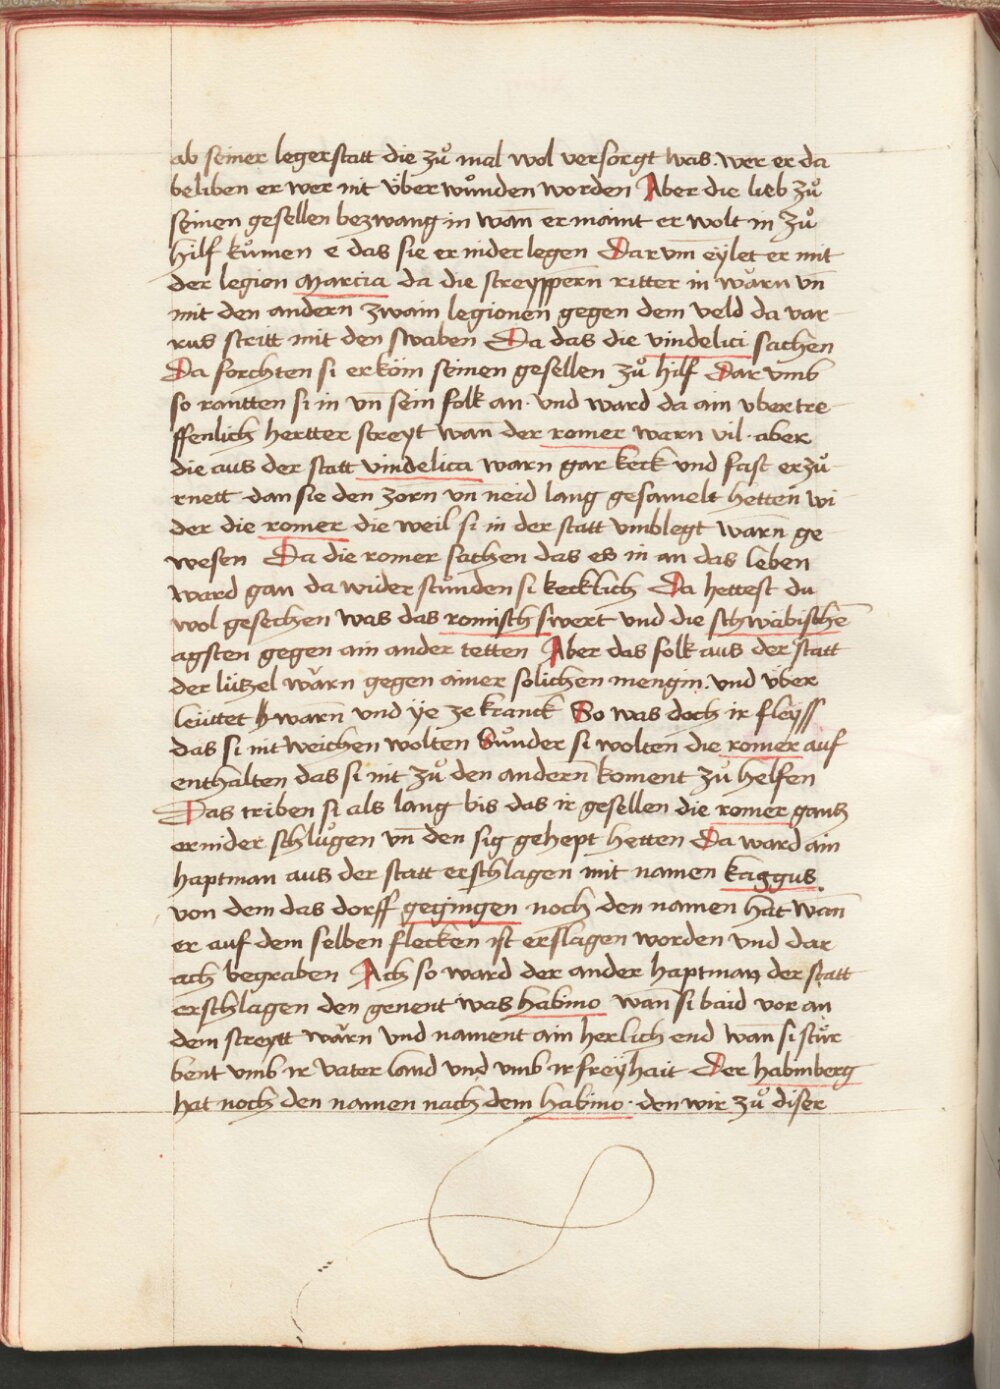 ab seiner legerstatt die zů mal wol versorgt was. wer er da
beliben er wer nit über wůnden worden Aber die lieb zů
seinen gesellen bezwang in wan̄ er maint er wolt in zů
hilf kůmen e das sie er nider legen Dar vm̄ eylet er mit
der legion Marcia da die streyppern ritter in wǎrn vn̄
mit den andern zwain legionen gegen dem veld da var
rus stritt mit den swaben Da das die vindelici sachen
Da forchten si er köm seinen gesellen zů hilf Dar vmb
so rantten si in vn̄ sein folk an. vnd ward da ain vbertre
ffenlich hertter streyt wan̄ der romer warn vil. aber
die aus der statt vindelica warn gar keck vnd fast erzů
rnett dan sie den zorn vn̄ neid lang gesamelt hetten wi
der die romer die weil si in der statt vmblegt warn̄ ge
wesen Da die romer sachen das es in an das leben
ward gan da wider stůnden si kecklich Da hettest du
wol gesechen was das romisch swert vnd die schwäbischē
agsten gegen ain ander tetten Aber das folk aus der statt
der lützel wǎrn gegen ainer solichen mengin. vnd über
leüttet warn̄ vnd ÿe ze kranck So was doch ir fleyss
das si nit weichen wolten Sůnder si wolten die romer auf
enthalten das si nit zů den andern̄ koment zů helfen
Das triben si als lang bis das ir gesellen die romer gantz
ernider schlůgen vn̄ den sig gehept hetten Da ward ain
haptman aus der statt erschlagen mit namen kaggus.
von dem das dorff gegingen noch den namen hat wan̄
er auf dem selben flecken ist erslagen worden vnd dar
ach begraben Ach so ward der ander haptman der statt
erschlagen den genent was habino wan̄ si baid vor an
dem streytt wǎrn vnd nament ain herlich end wan̄ si stür
bent vmb ir vater land vnd vmb ir freÿhait Der habinberg
hat noch den namen nach dem habino. den wir zů diser